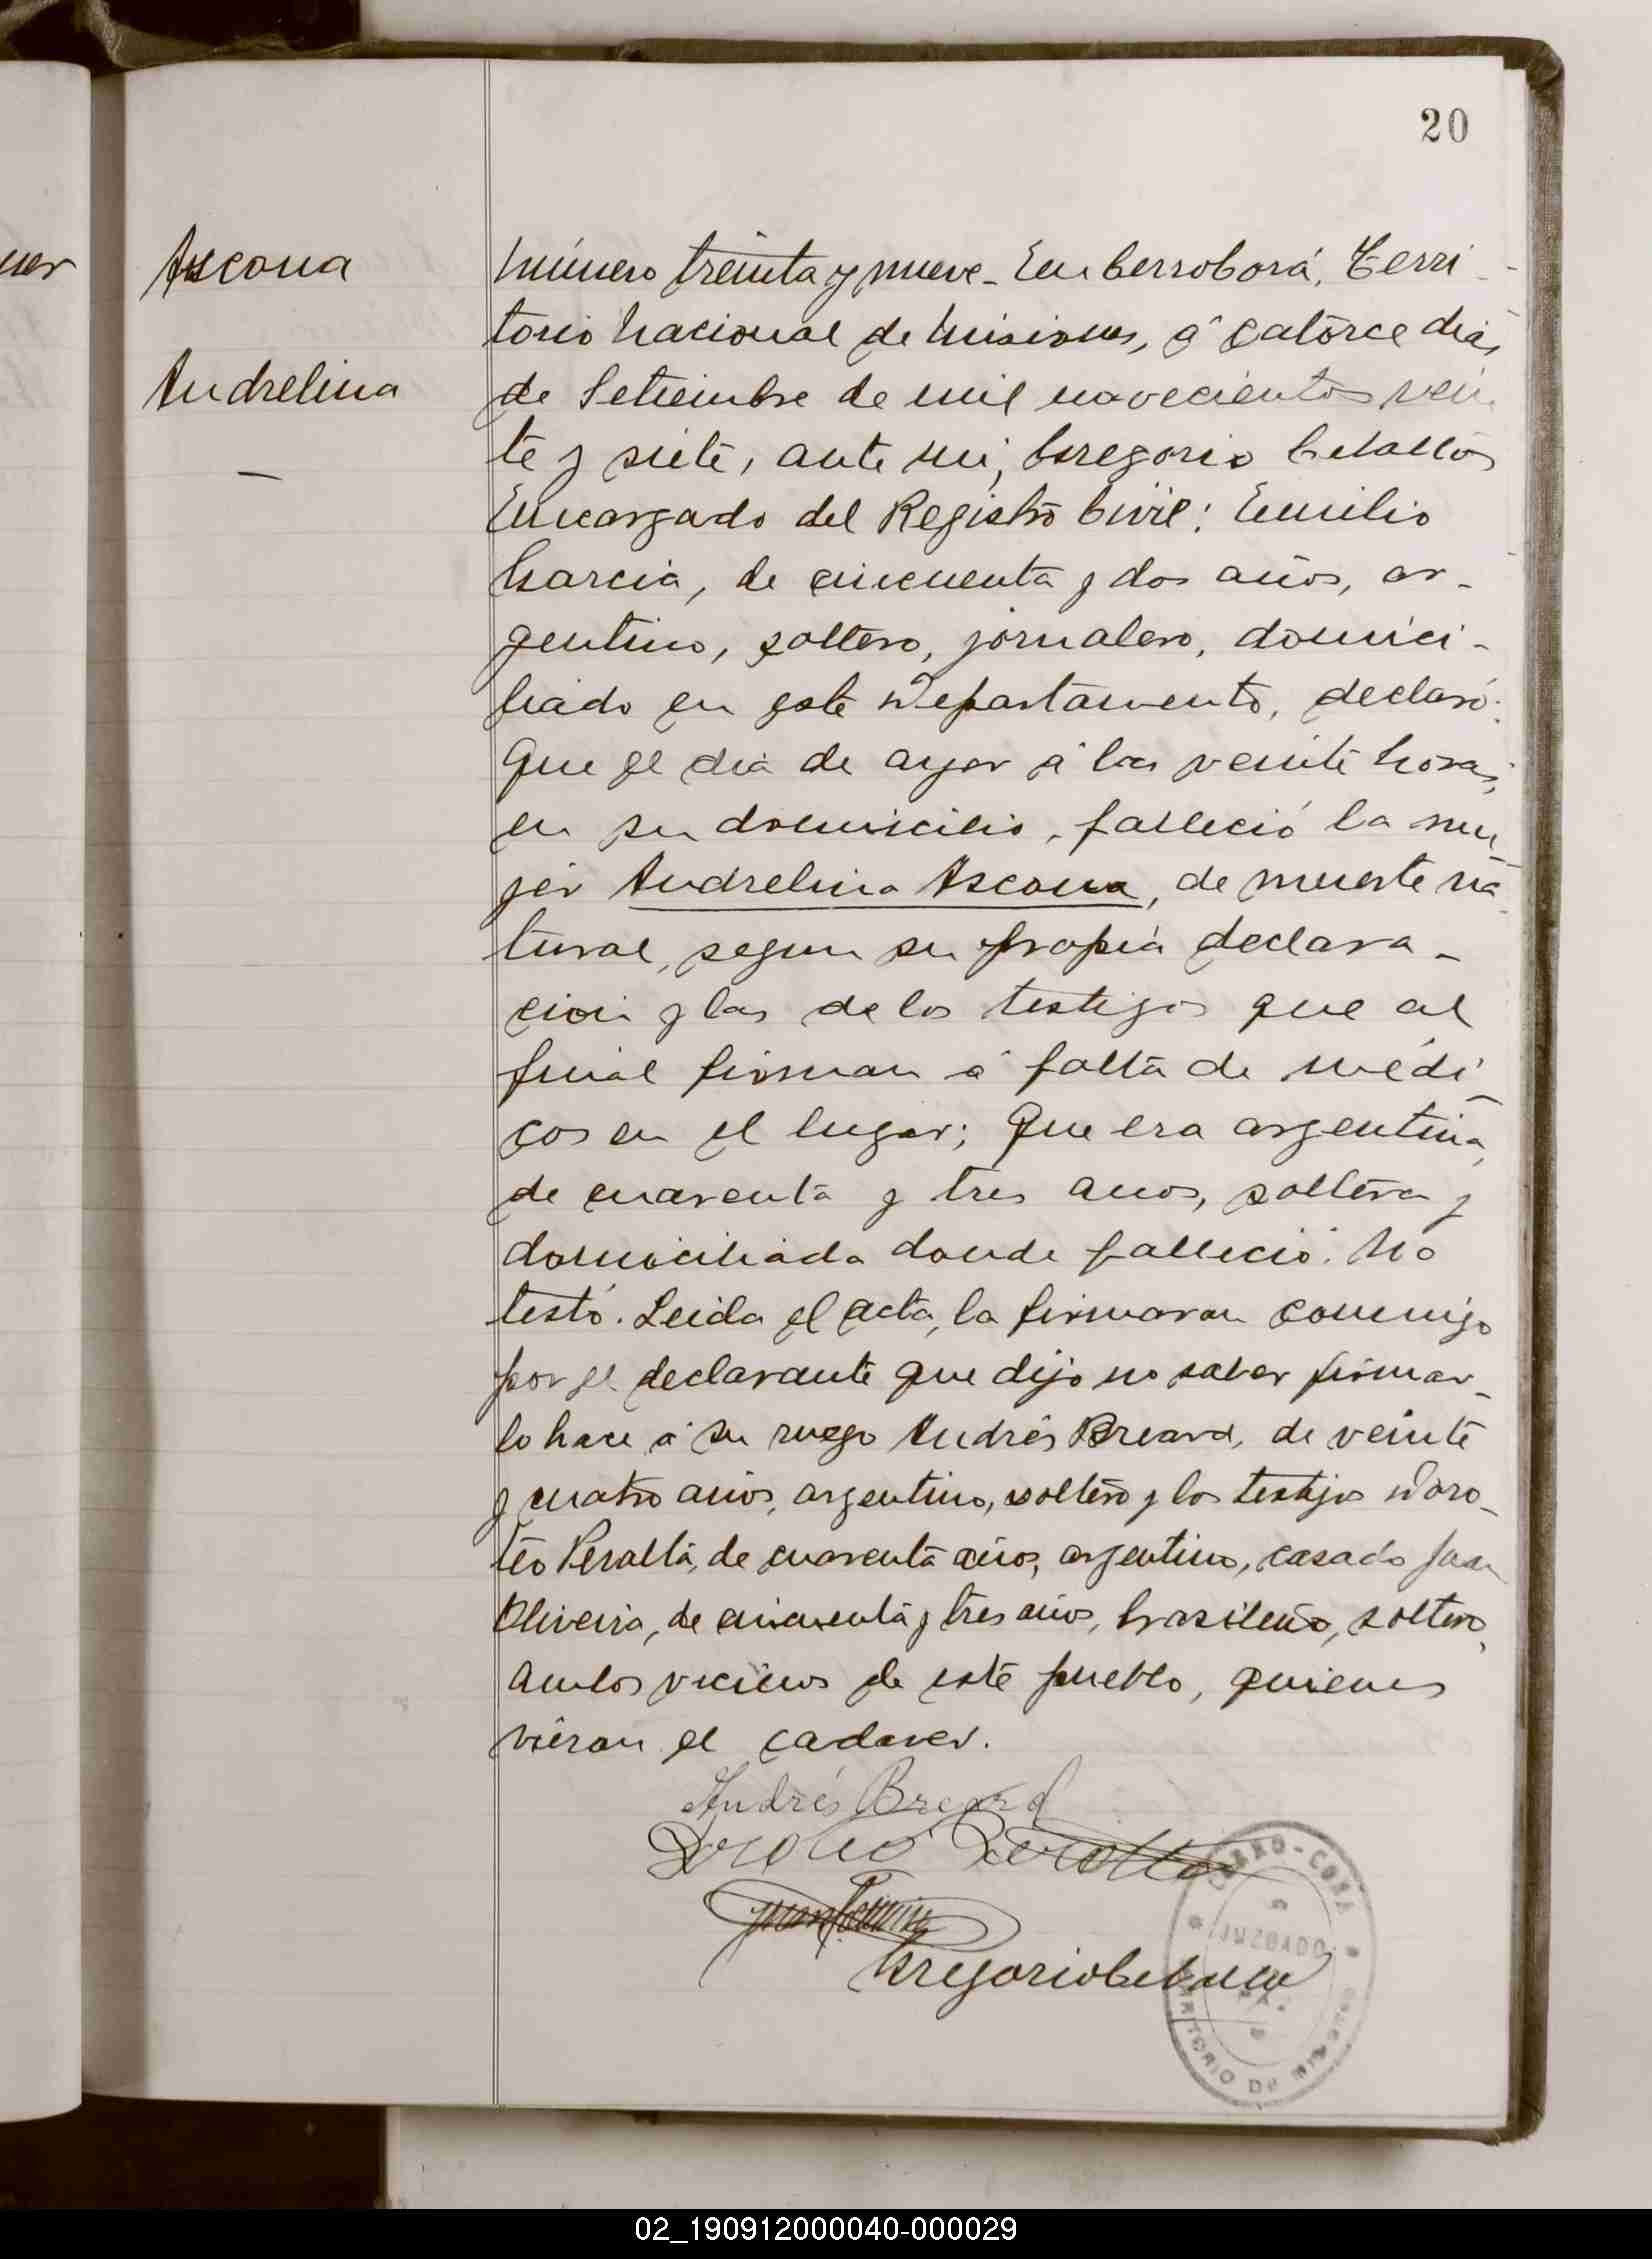 20
Ascona
Andrelina
Número treinta y nueve_ En Cerrocorá, Terri-
torio Nacional de Misiones, á catorce dias
de Setiembre de mil novecientos vein
te y siete, ante mi, Gregorio Ceballos
Encargado del Registro Civil: Emilio
Garcia, de cincuenta y dos años, ar-
gentino, soltero, jornalero, domici-
liado en este Departamento, declaró:
Que el dia de ayer á las veinte horas,
en su domicilio, falleció la mu
jer Andrelina Ascona, de muerte na
tural, segun su propia declara-
cion y las de los testigos que al
final firman á falta de médi
cos en el lugar; Que era argentina,
de cuarenta y tres años, soltera y
domiciliada donde falleció. No
testó. Leida el acta, la firmaron conmigo
por el declarante que dijo no saber firmar_
lo hace á su ruego Andrés Breard, de veinte
y cuatro años, argentino, soltero y los testigos Doro-
teo Peralta, de cuarenta años, argentino, casado Juan
Oliveira, de cincuenta y tres años, brasileño, soltero,
ambos vecinos de este pueblo, quienes
vieron el cadaver.
Andrés Breard
Doroteo Peralta
Gregorio Ceballos
CERRO-CORA
JUZGADO
PAZ
TERRITORIO DE MISIONES
02_190912000040-000029